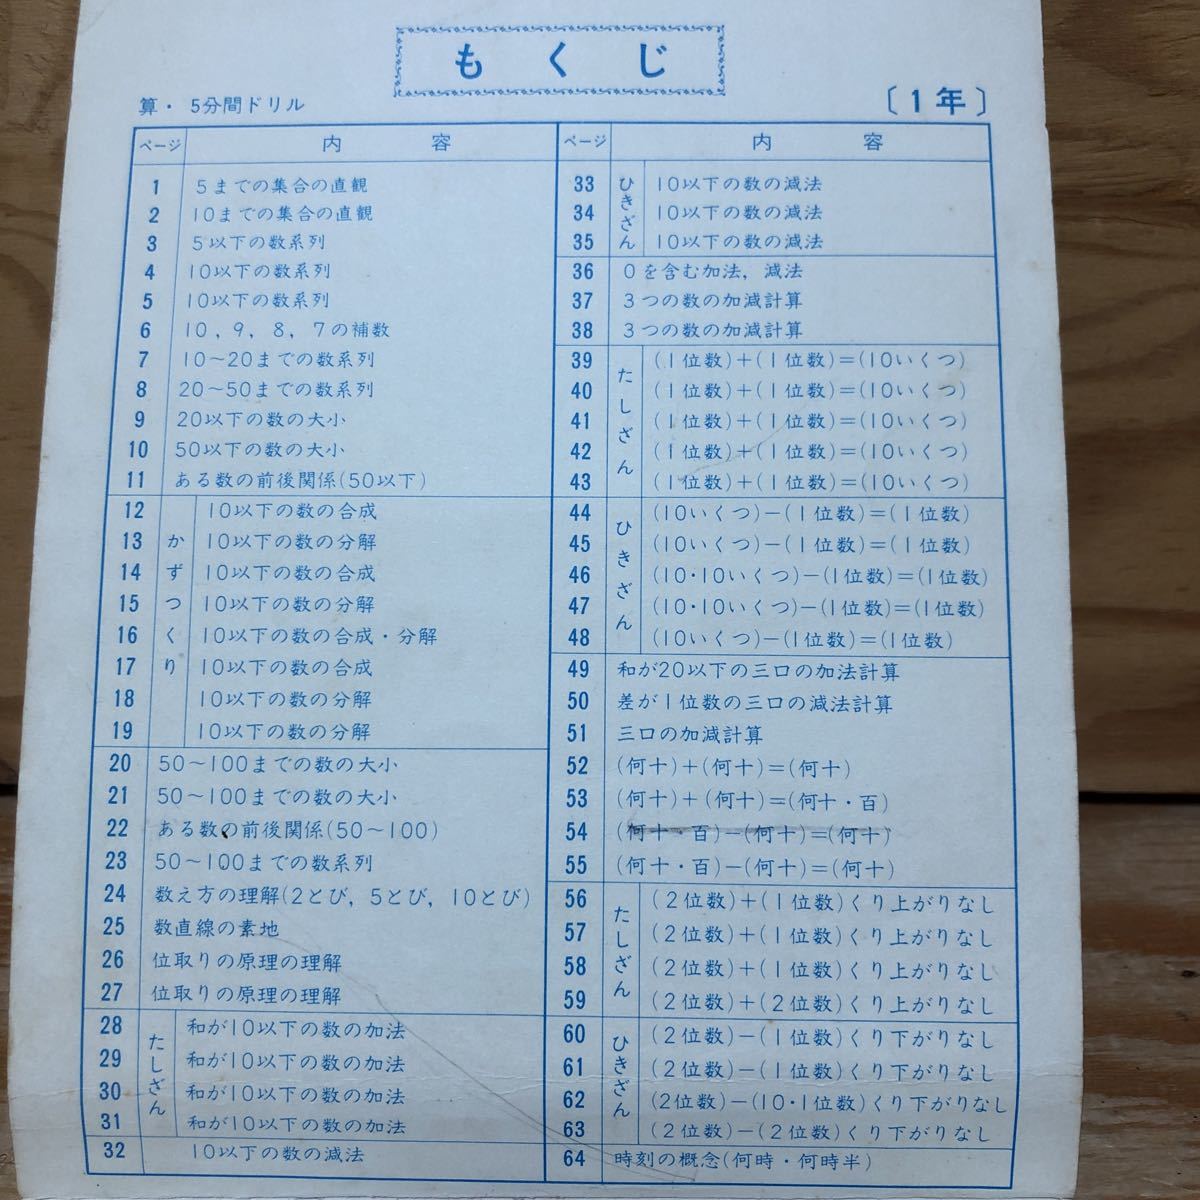 もくじ
算・5分間ドリル
〔1年〕
ページ 内容
1 5までの集合の直観
2 10までの集合の直観
3 5以下の数系列
4 10以下の数系列
5 10以下の数系列
6 10，9，8，7の補数
7 10～20までの数系列
8 20～50までの数系列
9 20以下の数の大小
10 50以下の数の大小
11 ある数の前後関係(50以下)
かずつくり
12 10以下の数の合成
13 10以下の数の分解
14 10以下の数の合成
15 10以下の数の分解
16 10以下の数の合成・分解
17 10以下の数の合成
18 10以下の数の分解
19 10以下の数の分解
20 50～100までの数の大小
21 50～100までの数の大小
22 ある数の前後関係(50～100)
23 50～100までの数系列
24 数え方の理解(2とび，5とび，10とび)
25 数直線の素地
26 位取りの原理の理解
27 位取りの原理の理解
たしざん
28 和が10以下の数の加法
29 和が10以下の数の加法
30 和が10以下の数の加法
31 和が10以下の数の加法
32 10以下の数の減法
ページ 内容
ひきざん
33 10以下の数の減法
34 10以下の数の減法
35 10以下の数の減法
36 0を含む加法，減法
37 3つの数の加減計算
38 3つの数の加減計算
たしざん
39 (1位数)+(1位数)=(10いくつ)
40 (1位数)+(1位数)=(10いくつ)
41 (1位数)+(1位数)=(10いくつ)
42 (1位数)+(1位数)=(10いくつ)
43 (1位数)+(1位数)=(10いくつ)
ひきざん
44 (10いくつ)-(1位数)=(1位数)
45 (10いくつ)-(1位数)=(1位数)
46 (10・10いくつ)-(1位数)=(1位数)
47 (10・10いくつ)-(1位数)=(1位数)
48 (10いくつ)-(1位数)=(1位数)
49 和が20以下の三口の加法計算
50 差が1位数の三口の減法計算
51 三口の加減計算
52 (何十)+(何十)=(何十)
53 (何十)+(何十)=(何十・百)
54 (何十・百)-(何十)=(何十)
55 (何十・百)-(何十)=(何十)
たしざん
56 (2位数)+(1位数)くり上がりなし
57 (2位数)+(1位数)くり上がりなし
58 (2位数)+(1位数)くり上がりなし
59 (2位数)+(2位数)くり上がりなし
ひきざん
60 (2位数)-(1位数)くり下がりなし
61 (2位数)-(1位数)くり下がりなし
62 (2位数)-(10・1位数)くり下がりなし
63 (2位数)-(2位数)くり下がりなし
64 時刻の概念(何時・何時半)